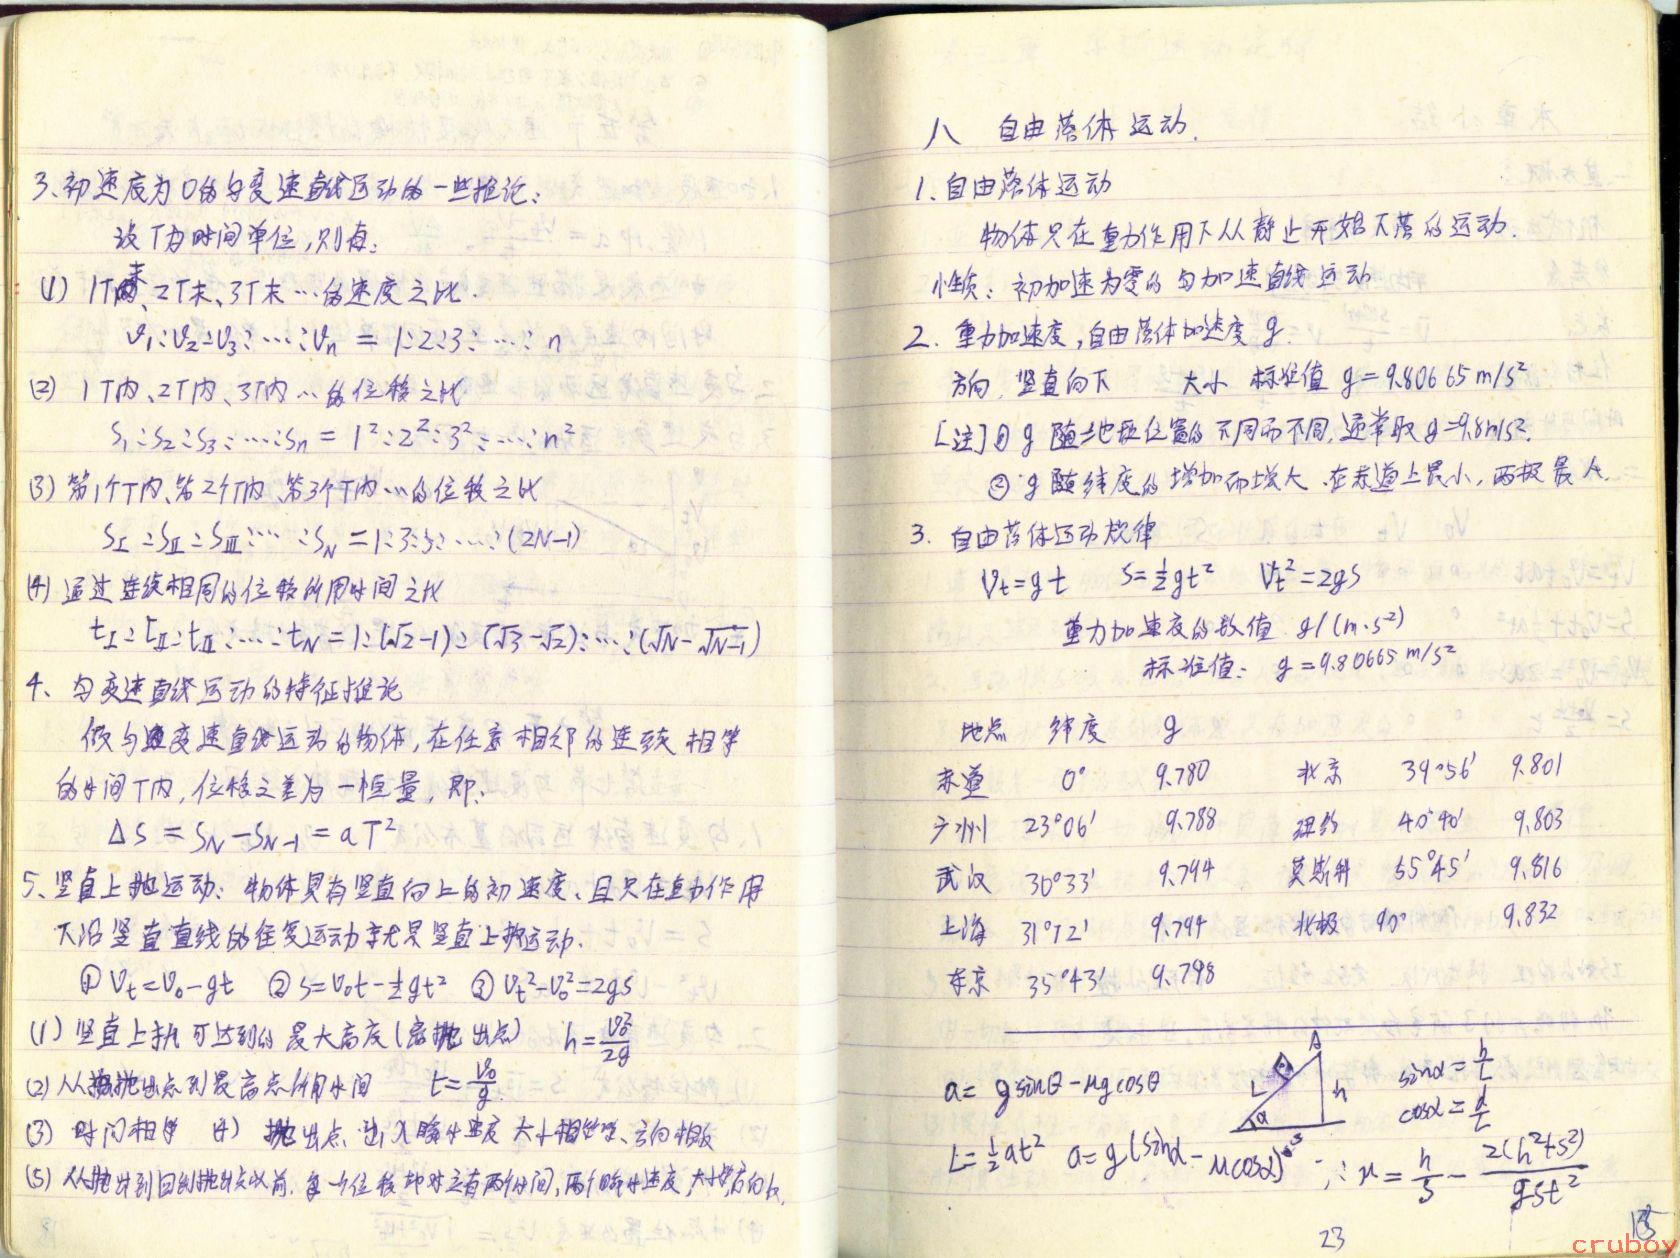 3、初速度为0的匀变速直线运动的一些推论:
设T为时间单位,则有:
(1) 1T末、2T末、3T末…的速度之比.
v₁:v₂:v₃:…:vₙ = 1:2:3:…:n
(2) 1T内、2T内、3T内…的位移之比
S₁:S₂:S₃:…:Sn = 1²:2²:3²:…:n²
(3) 第1个T内、第2个T内、第3个T内…的位移之比
SⅠ:SⅡ:SⅢ:…:S_N = 1:3:5:…:(2N-1)
(4) 通过连续相同的位移所用时间之比
tⅠ:tⅡ:tⅢ:…:t_N = 1:(√2-1):(√3-√2):…:(√N-√N-1)
4、匀变速直线运动的特征推论
做匀变速直线运动的物体,在任意相邻的连续相等
的时间T内,位移之差为一恒量,即:
ΔS = S_N - S_N-1 = aT²
5、竖直上抛运动:物体具有竖直向上的初速度、且只在重力作用
下沿竖直直线的往复运动就是竖直上抛运动.
① Vt=V₀-gt ② S=V₀t-½gt² ③ Vt²-V₀²=2gS
(1) 竖直上抛可达到的最大高度(离抛出点) h=V₀²/2g
(2) 从抛出点到最高点所用时间 t=V₀/g
(3) 时间相等 (4) 抛出点 出入瞬时速度大小相等、方向相反
(5) 从抛出到回到抛出点以前.每一个位移都对应有两个时间,两个瞬时速度,大小等,方向反.
八 自由落体运动.
1. 自由落体运动
物体只在重力作用下从静止开始下落的运动.
性质: 初加速为零的匀加速直线运动
2. 重力加速度,自由落体加速度 g.
方向 竖直向下 大小 标准值 g=9.80665m/s²
[注]① g 随地理位置的不同而不同,通常取g=9.8m/s².
② g随纬度的增加而增大 在赤道上最小,两极最大.
3. 自由落体运动规律
Vt=gt S=½gt² Vt²=2gS
重力加速度的数值 g/(m·s²)
标准值: g=9.80665m/s²
地点 纬度 g
赤道 0° 9.780 北京 39°56' 9.801
广州 23°06' 9.788 纽约 40°40' 9.803
武汉 30°33' 9.794 莫斯科 55°45' 9.816
上海 31°12' 9.794 北极 90° 9.832
东京 35°43' 9.798
a= gsinθ-μgcosθ
A L h α
sinα=h/L
cosα=
L=½at² a=g(sinα-μcosα) ∴ μ=h/S - 2(h²+S²)/gSt²
23
cruboy